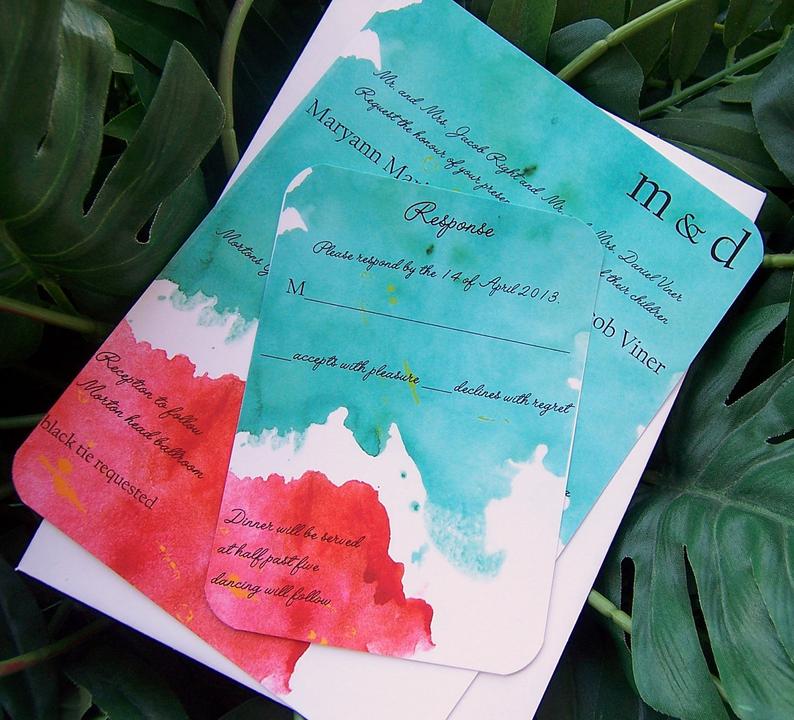 m & d
Mr. and Mrs. Jacob Right and Mr. Mrs. Daniel Viner
Request the honour of your their children
Maryann ob Viner
Mortons
Reception to follow
Morton head ballroom
black tie requested
Response
Please respond by the 14 of April 2013.
M
accepts with pleasure declines with regret
Dinner will be served
at half past five
dancing will follow